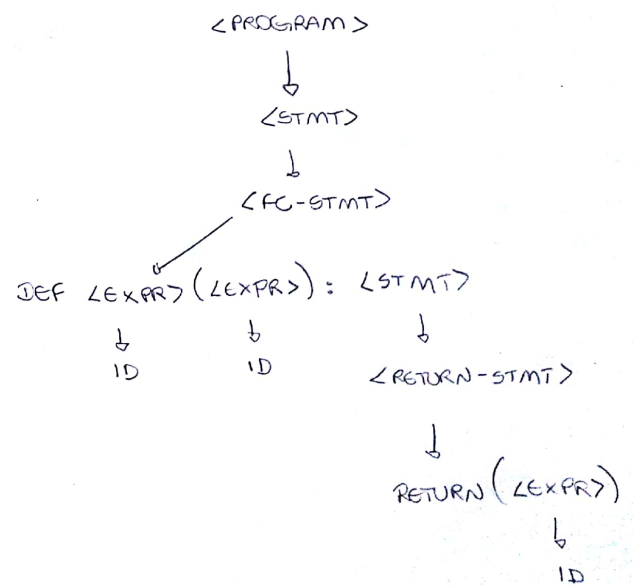 <PROGRAM>
<STMT>
<FC-STMT>
DEF <EXPR> (<EXPR>): <STMT>
ID ID
<RETURN-STMT>
RETURN (<EXPR>)
ID